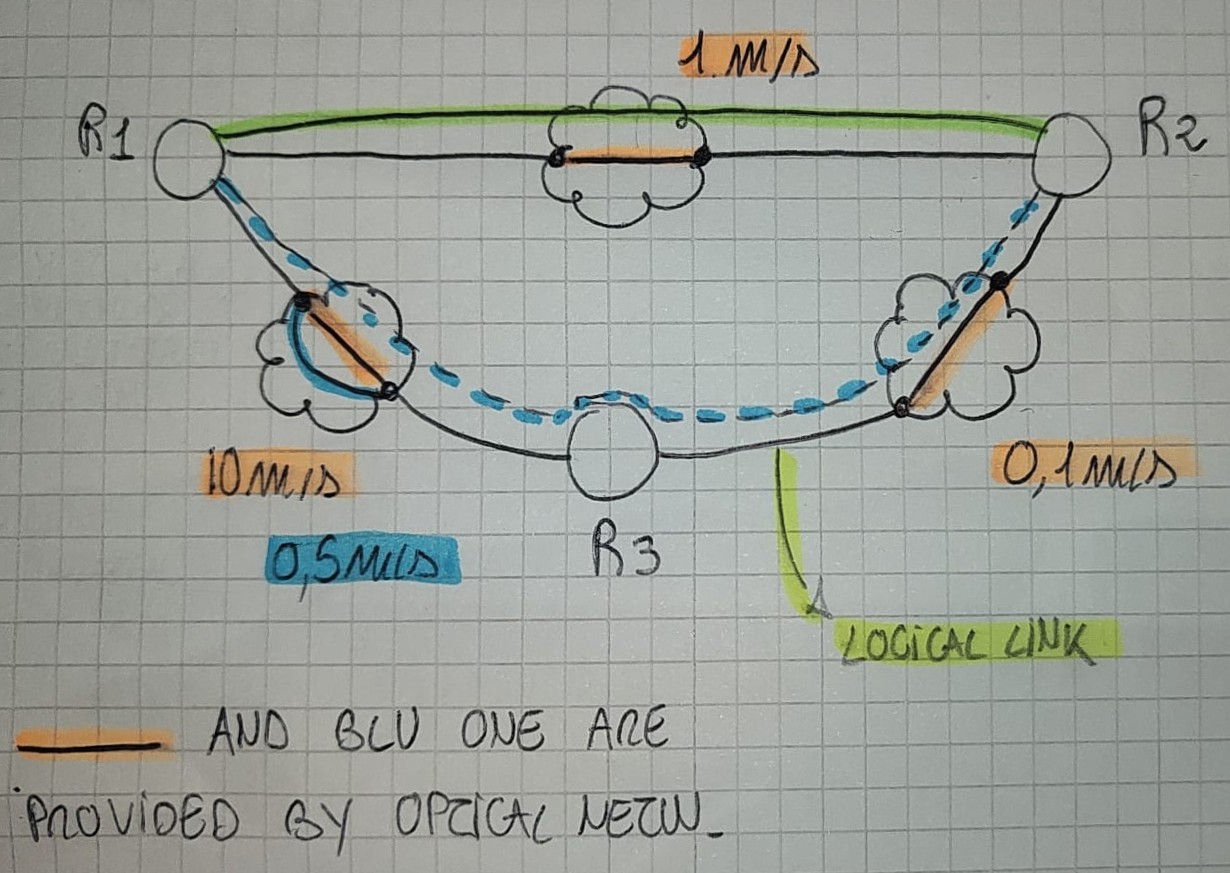 1 m/s
R1
R2
10 m/s
0,1 m/s
0,5 m/s
R3
LOGICAL LINK
AND BLU ONE ARE
PROVIDED BY OPTICAL NETW.